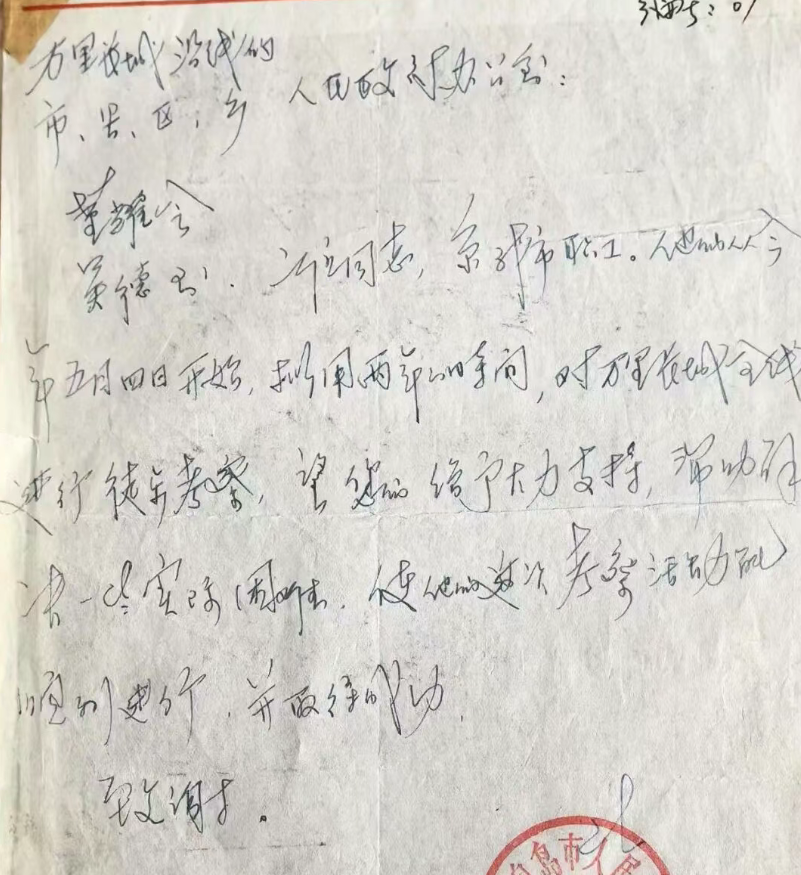 万里长城沿线的
市、县、区、乡 人民政府办公室：
董耀会
吴德玉 同志，系我市职工。他们从今
年五月四日开始，拟用两年的时间，对万里长城全线
进行徒步考察，望您们给予大力支持，帮助解
决一些实际困难，使他们这次考察活动能
顺利进行，并取得成功。
谢
皇岛市人民